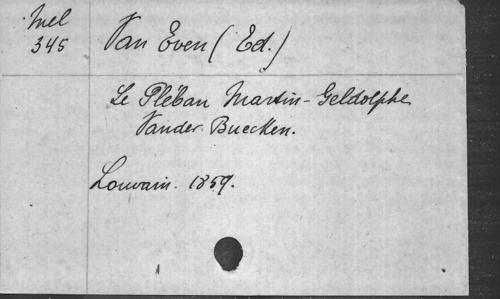 Mel
345
Van Even (Ed.)
Le Pléban Martin-Geldolphe
Vander Buecken.
Louvain. 1859.